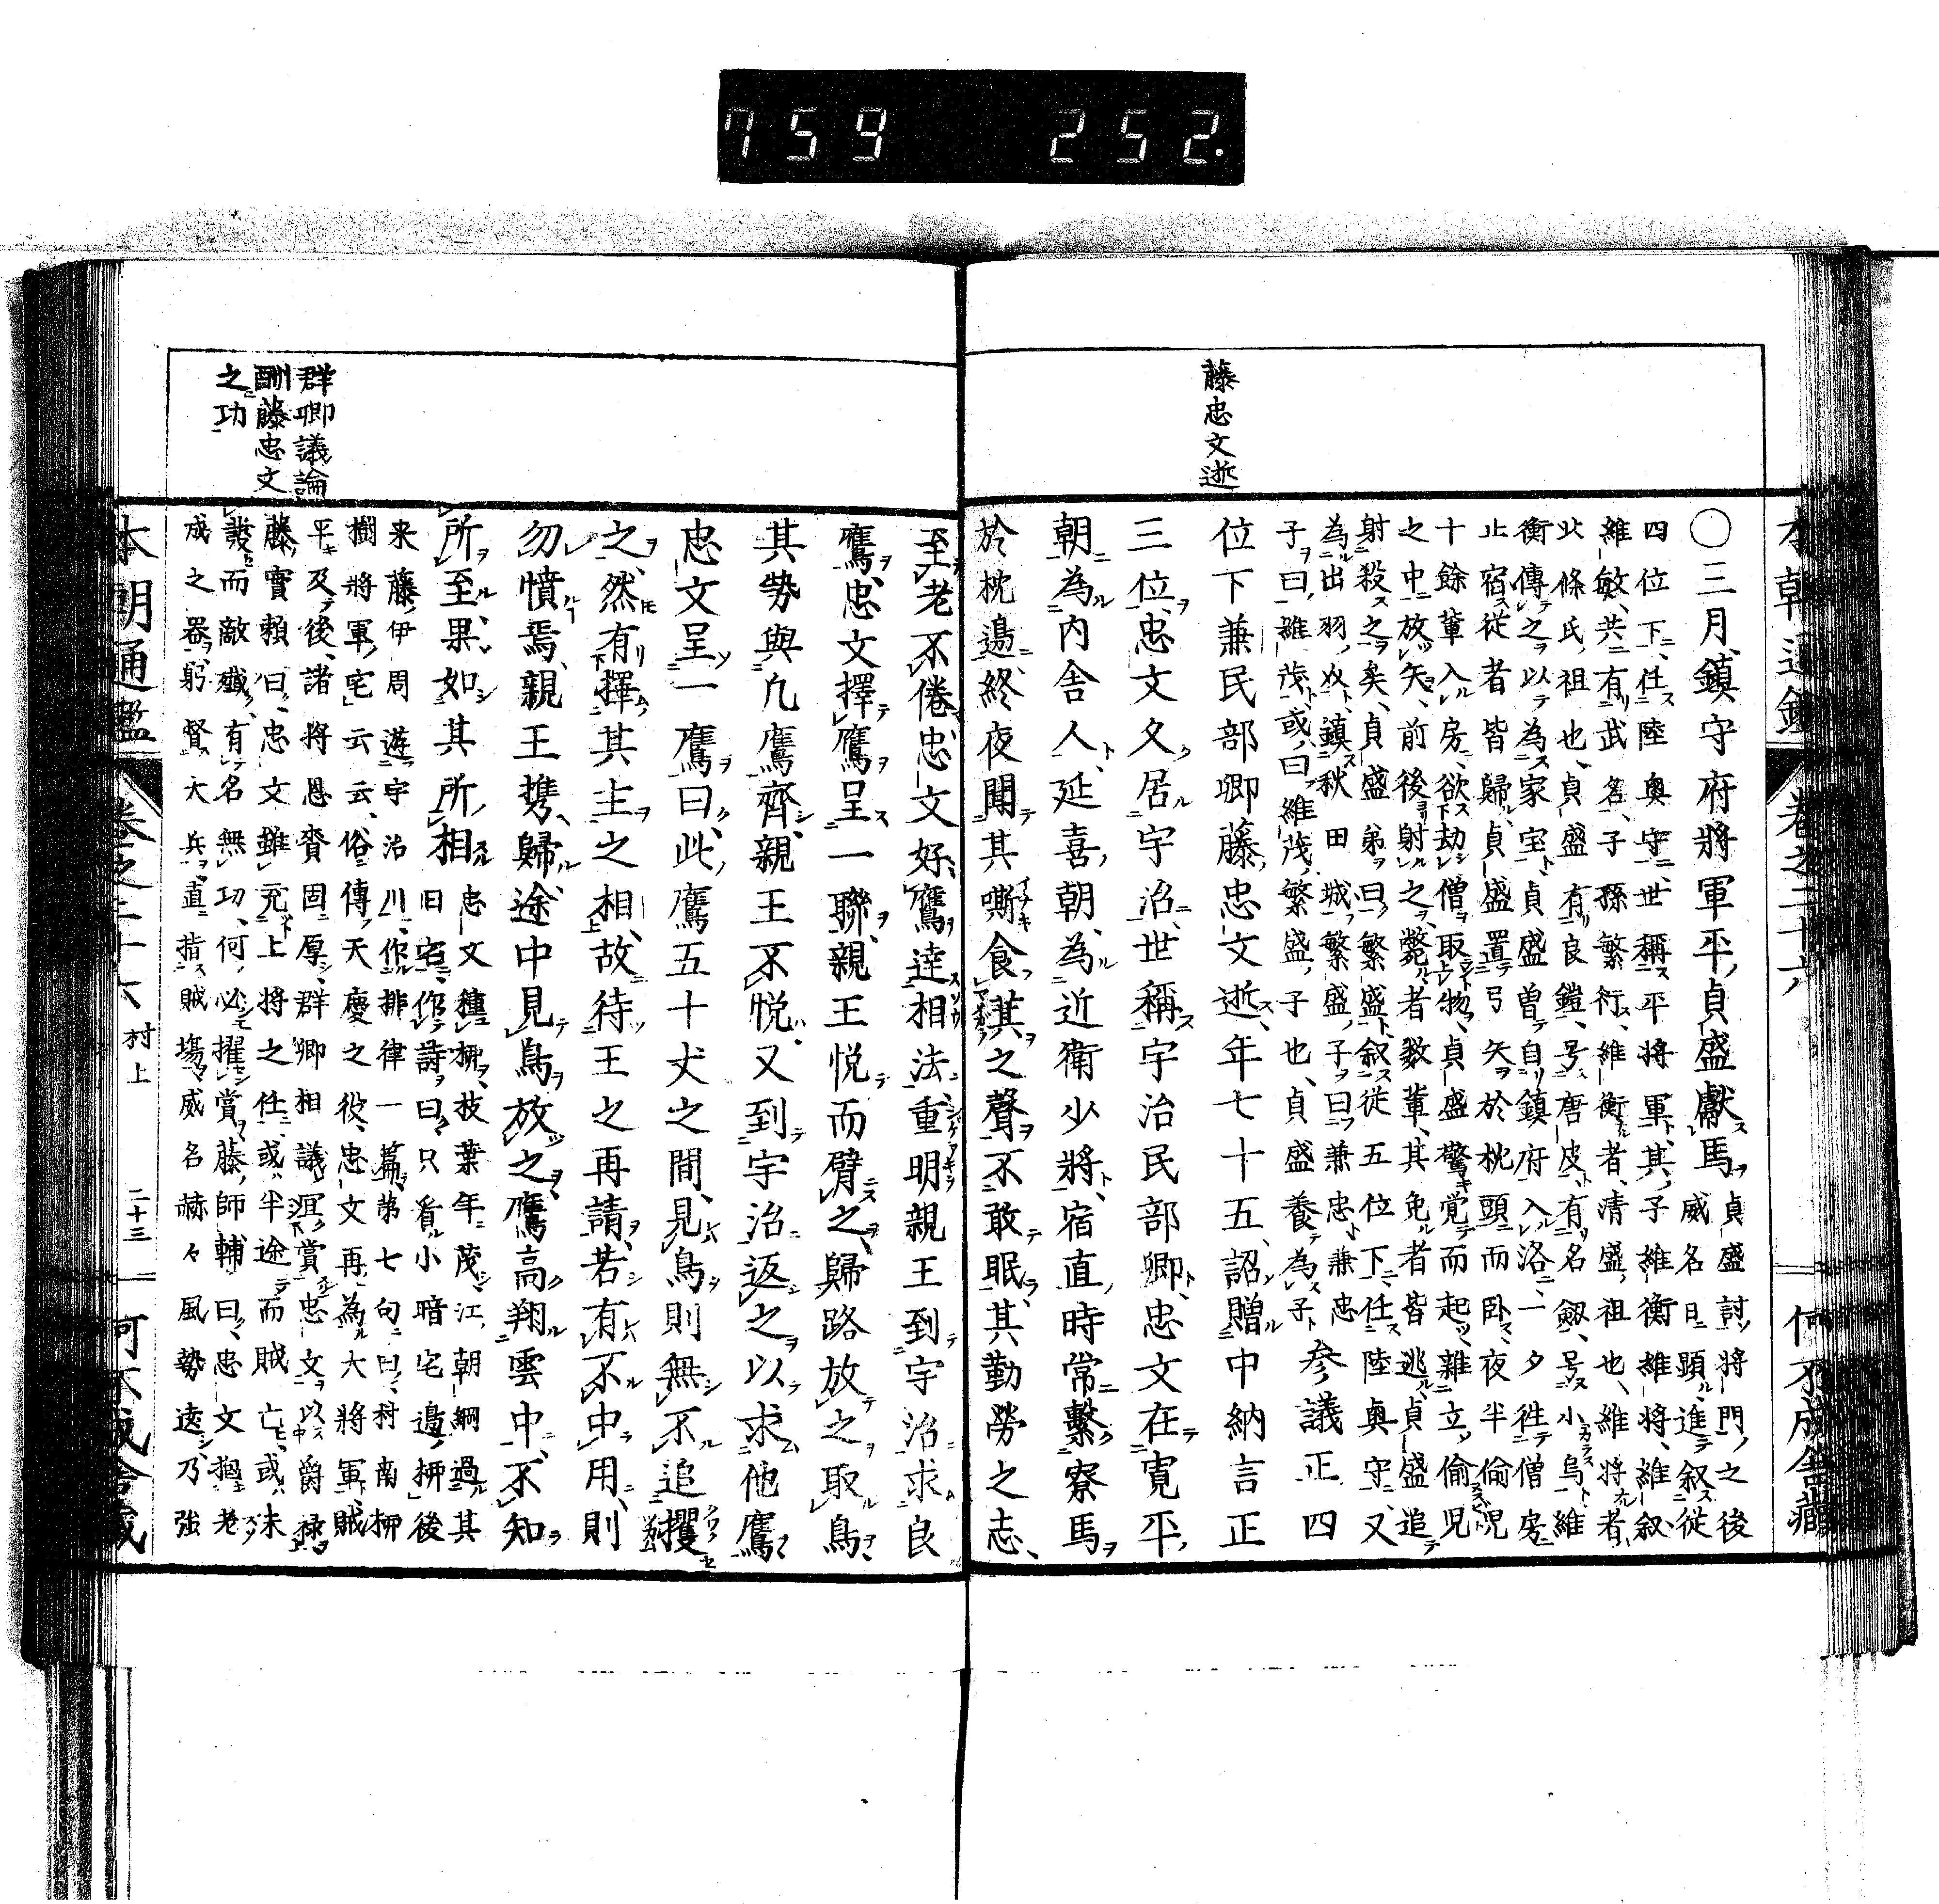 759 252.
本朝通鑑 卷之二十六 何不成舍藏
藤忠文逝
〇三月、鎮守府將軍平貞盛獻馬、貞盛討將門之後
威名日顯、進叙從
四位下、任陸奥守、世稱平將軍、其子維衡維將、維叙
維敏、共有武名、子孫繁衍、維衡者、清盛祖也、維將者、
北條氏祖也、貞盛有良鎧、号唐皮、有名劔、号小烏、維
衡傳之、以為家宝、貞盛曽自鎮府入洛、一夕徃僧房
止宿、從者皆歸、貞盛置弓矢於枕頭而卧、夜半偷児
十餘輩入房、欲劫僧取物、貞盛驚覚而起、雜立偷児
之中放矢、前後射之、斃者數輩、其免者皆逃、貞盛追
射殺之矣、貞盛弟曰繁盛、叙從五位下、任陸奥守、又
為出羽、鎮秋田城、繁盛子曰兼忠、兼忠
子曰維茂、或曰維茂、繁盛子也、貞盛養為子、
参議正四
位下兼民部卿藤忠文逝、年七十五、詔贈中納言正
三位、忠文久居宇治、世稱宇治民部卿、忠文在寛平
朝為内舍人、延喜朝為近衛少將、宿直時常繫寮馬
於枕邊、終夜聞其嘶食萁之聲、不敢眠、其勤勞之志、
至老不倦、忠文好鷹、達相法、重明親王到宇治求良
鷹、忠文擇鷹呈一聯、親王悦而臂之、歸路放之取鳥、
其勢與凡鷹齊、親王不悦、又到宇治返之、以求他鷹
忠文呈一鷹曰、此鷹五十丈之間、見鳥則無不追攫
之、然有擇其主之相、故待王之再請、若有不中用、則
勿憤焉、親王携歸、途中見鳥放之、鷹高翔雲中、不知
所至、果如其所相
忠文種栁、枝葉年茂、江朝綱過其
旧宅、作詩曰、只看小暗宅邉栁、後
来藤伊周遊宇治川、作排律一篇、第七句曰、村南栁
樹將軍宅云云、俗傳、天慶之役、忠文再為大將軍、賊
平及後、諸将恩賚固厚、群卿相議、冝賞忠文以爵禄、
藤實頼曰、忠文雖充上将之任、或半途而賊亡、或未
發而敵殱、有名無功、何必擢賞、藤師輔曰、忠文老
成之器、躬督大兵、直指賊塲、威名赫々、風勢遠、乃強
群卿議論
酬藤忠文
之功
本朝通鑑 卷之二十六 村上 二十三 何不成舍藏